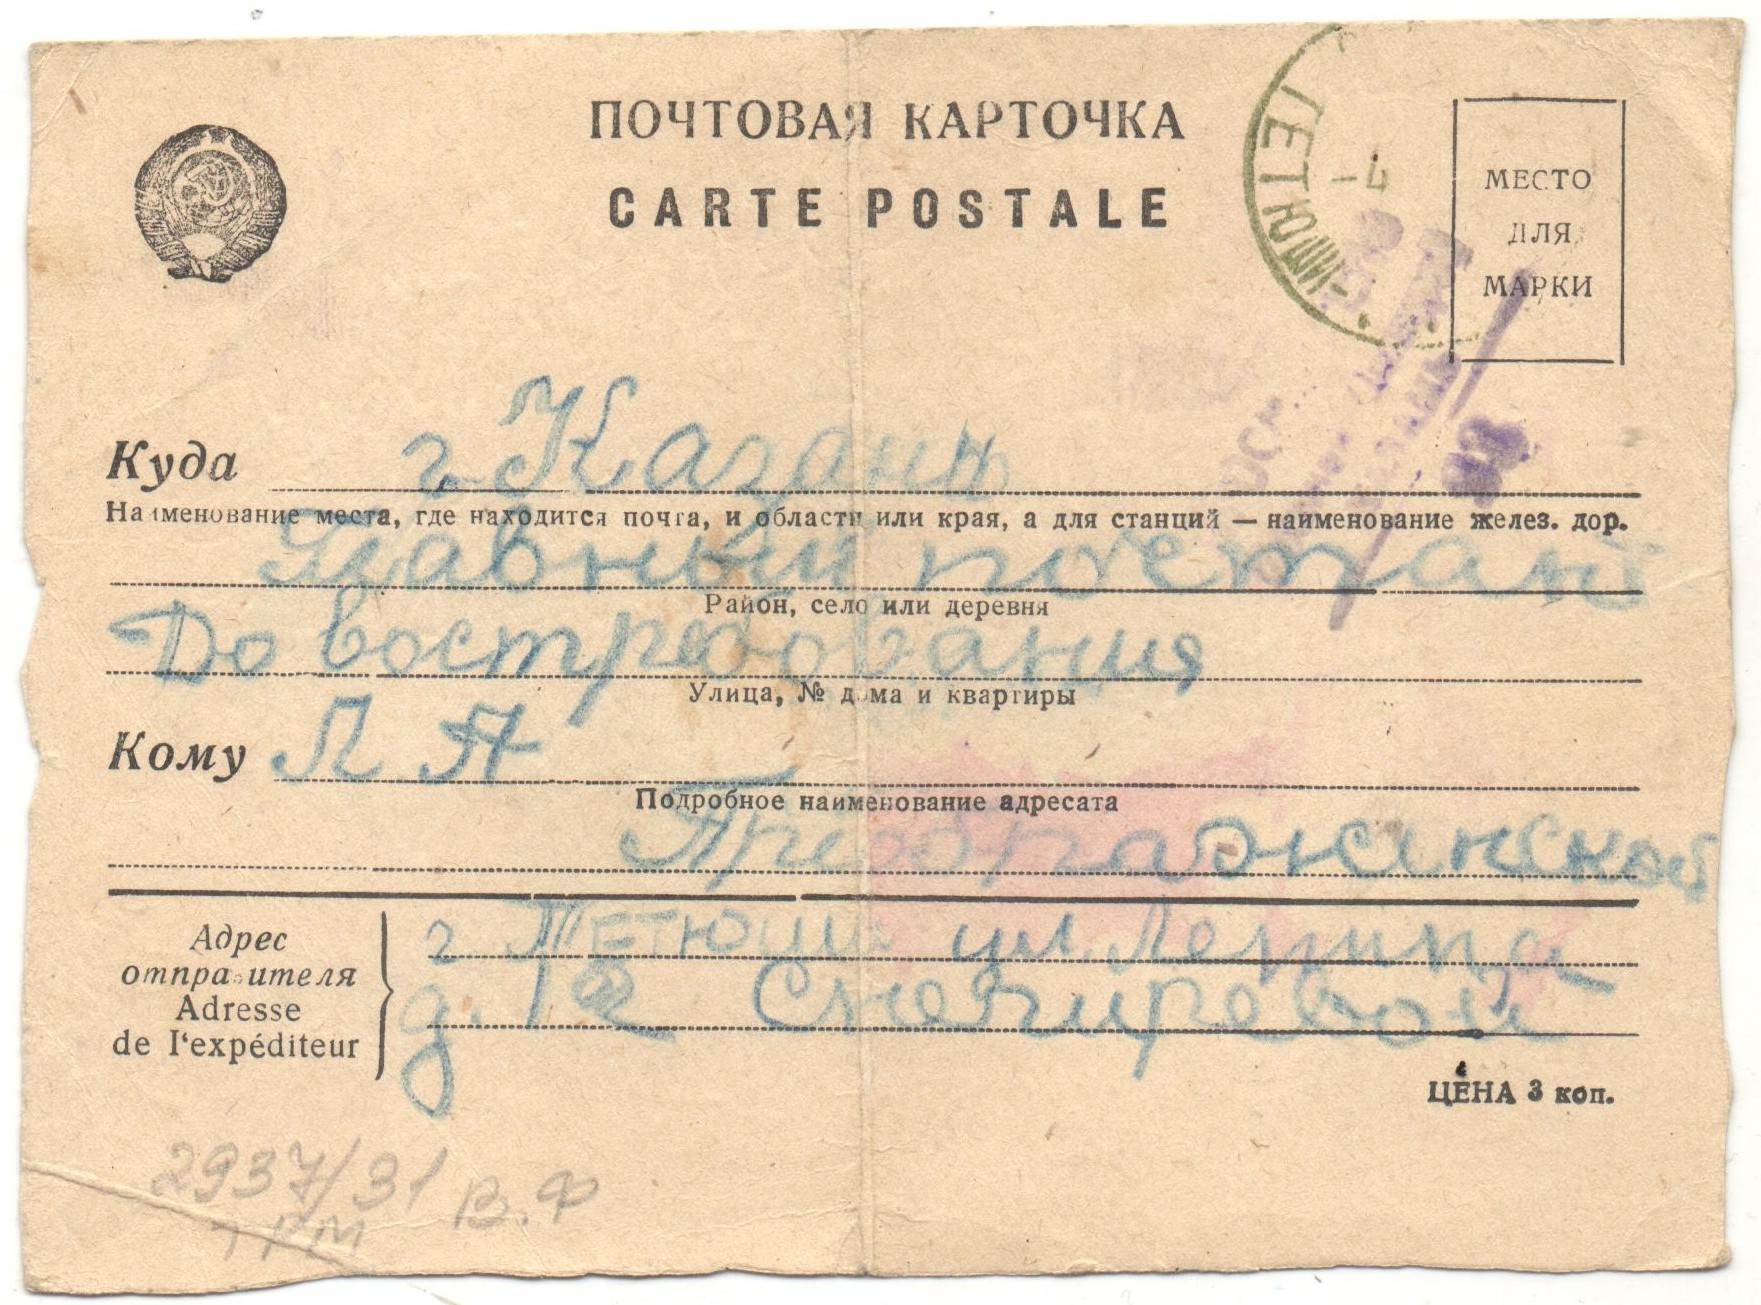 ПОЧТОВАЯ КАРТОЧКА
CARTE POSTALE
ТЕТЮШИ
-4
МЕСТО
ДЛЯ
МАРКИ
Куда г. Казань
Наименование места, где находится почта, и области или края, а для станций — наименование желез. дор.
Главный почтамт
Район, село или деревня
До востребования
Улица, № дома и квартиры
Кому Л А
Подробное наименование адресата
Преображенской
Адрес отправителя
Adresse de l'expéditeur
г. Тетюши ул. Ленина
д. 12 Снегиревой
ЦЕНА 3 коп.
2937/31 В.Ф
ТРМ